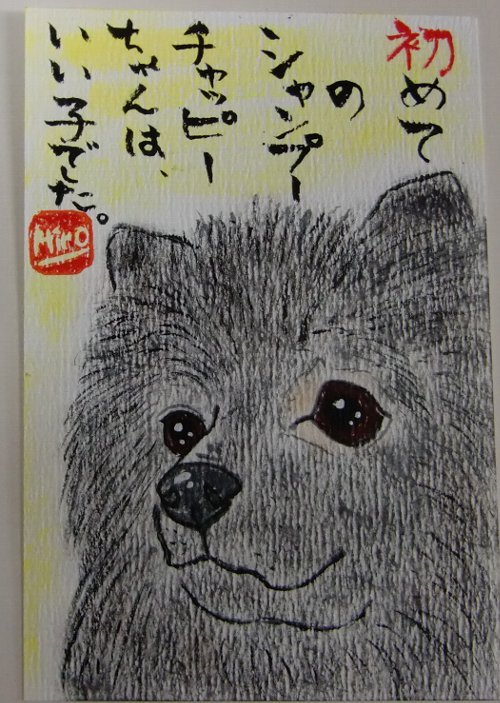 初めて
の
シャンプー
チャッピー
ちゃんは、
いい子でした。
Miro